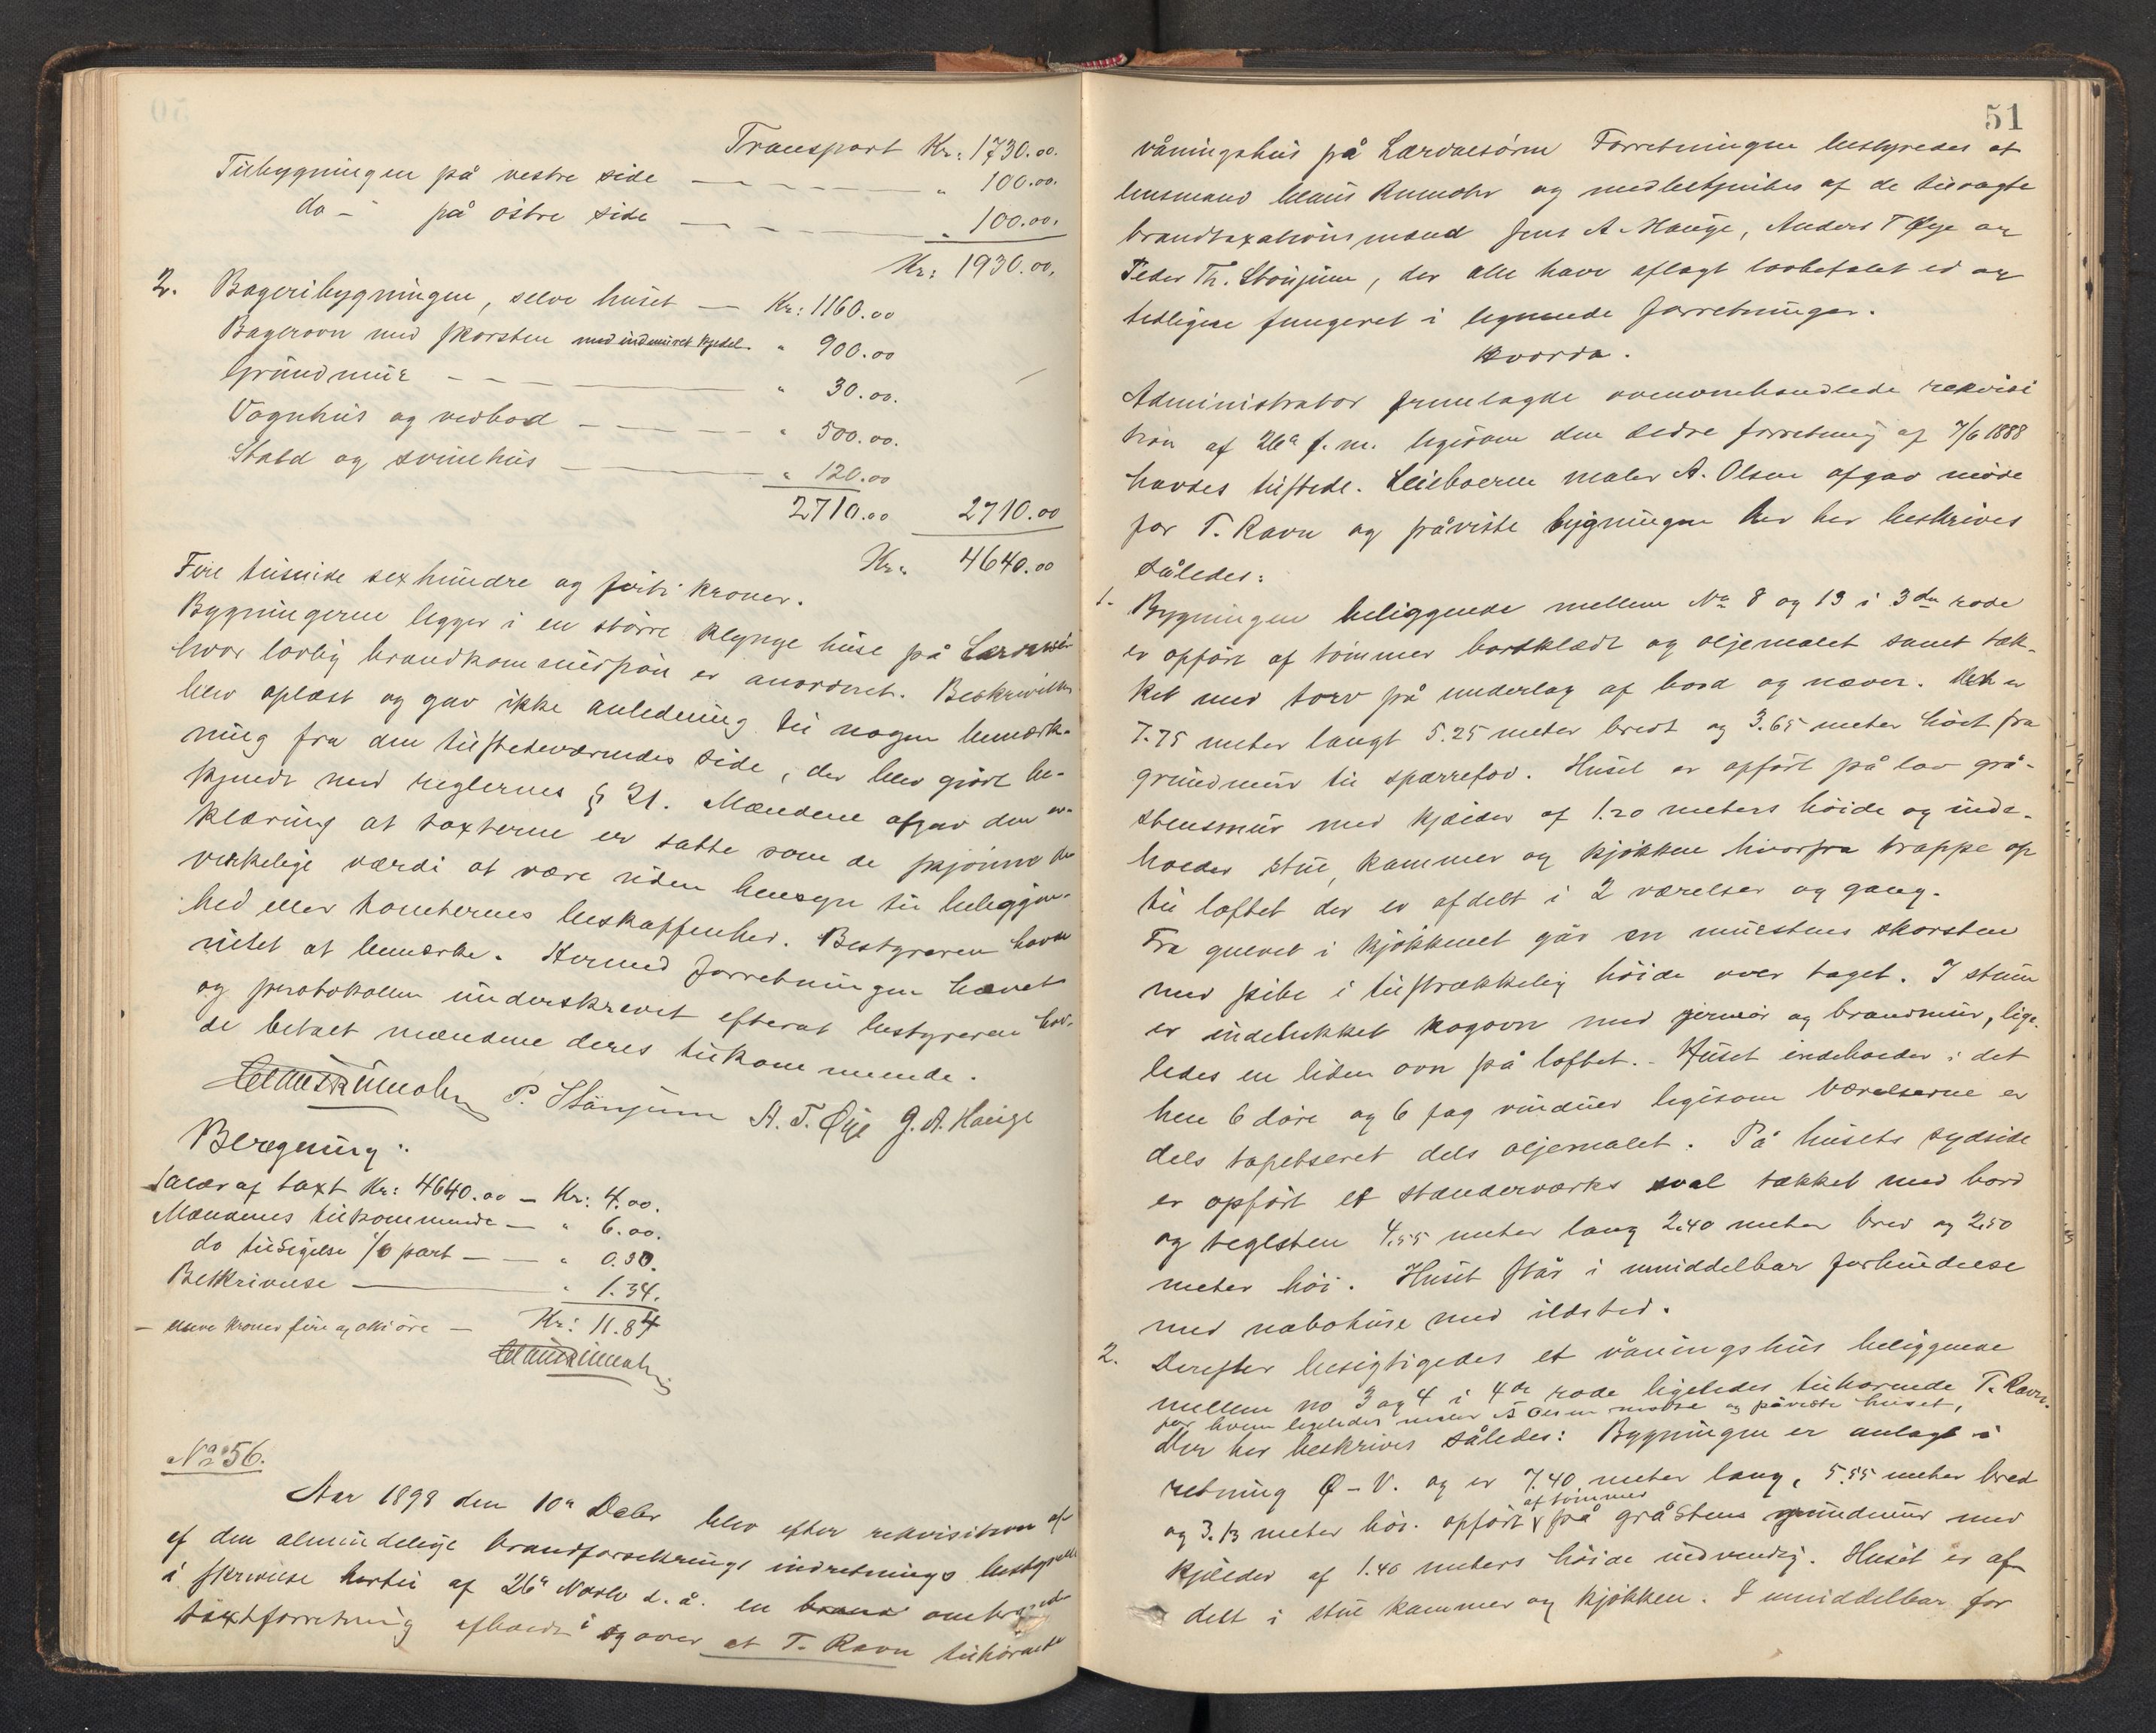 Transport Kr: 1730.00.
Tilbygningen på vestre side — " 100.00.
do - på östre side — " 100.00.
Kr: 1930.00.
2. Bageribygningen, selve huset — Kr: 1160.00
Bagerovn med skorsten med indmuret kjedel. " 900.00
Grundmur — " 30.00.
Vognhus og vedbod — " 500.00.
Stald og svinehus — " 120.00
2710.00 2710.00
Kr: 4640.00
Fire tusinde sexhundre og förti kroner.
Bygningerne ligger i en större klynge huse på
hvor lovlig brandkommission er anordnet. Beskrivelsen
blev oplæst og gav ikke anledning til nogen bemærk-
ning fra den tilstedeværendes side, der blev gjört be-
kjendt med reglernes § 21. Mændene afgav den er-
klæring at taxterne er satte som de skjönne den
virkelige værdi at være uden hensyn til beliggen-
hed eller tomternes beskaffenhed. Bestyreren havde
intet at bemærke. Hermed forretningen hævet
og protokollen underskrevet efterat bestyreren hav-
de betalt mændene deres tilkommende.
Claus Rumohr P. Stönjum A. T. Øye J. A. Hauge
Beregning:
Salær af taxt Kr: 4640.00 — Kr: 4.00.
Mændenes tilkommende — " 6.00.
do tilsigelse 1/6 part — " 0.50.
Beskrivelse — " 1.34.
— elleve kroner fire og otti öre — Kr: 11.84
Claus Rumohr
No 56.
Aar 1898 den 10de Debr blev efter rekvisition af
af den almindelige brandforsikrings indretnings bestyrelse
i skrivelse hertil af 26de Novbr d. å. en brand omtaxt
taxtforretning afholdt i og over et T. Ravn tilhörende
51
våningshus på Lærdalsören Forretningen bestyredes af
lensmand Claus Rumohr og medbetjentes af de tilvagte
brandtaxationsmænd Jens A Hauge, Anders T Øye og
Peder Th. Stönjum, der alle have aflagt lovbefalet ed og
tidligere fungeret i lignende forretninger.
Hvorda.
Administrator fremlagde ovenomhandlede rekvisi
tion af 26de f. m. ligesom den ældre forretning af 7/6 1888
havdes tilstede. Leieboeren maler A. Olsen afgav möde
for T. Ravn og påviste bygningen der her beskrives
således:
1. Bygningen beliggende mellem No 8 og 13 i 3die rode
er opfört af tömmer bordklædt og oljemalet samt tæk-
ket med torv på underlag af bord og næver. Det er
7.75 meter langt 5.25 meter bredt og 3.65 meter höit fra
grundmur til sparrefod. Huset er opfört på lav grå-
stensmur med kjælder af 1.20 meters höide og inde-
holder stue, kammer og kjökken hvorfra trappe op
til loftet der er afdelt i 2 værelser og gang.
Fra gulvet i kjökkenet går en murstens skorsten
med pibe i tilstrækkelig höide over taget. I stuen
er indelukket kogovn med jernrör og brandmur, lige-
ledes en liden ovn på loftet. - Huset indeholder i det
hele 6 döre og 6 fag vinduer ligesom værelserne er
dels tapetseret dels oljemalet. På husets sydside
er opfört et stænderværks sval tækket med bord
og teglsten 4.55 meter lang 2.40 meter bred og 2.50
meter höi. Huset står i umiddelbar forbindelse
med nabohuse med ildsted.
2. Derefter besigtigedes et våningshus beliggende
mellem no 3 og 4 i 4de rode ligeledes tilhörende T. Ravn.
for hvem ligeledes maler A Olsen mödte og påviste huset,
der her beskrives således: Bygningen er anlagt i
retning Ø - V. og er 7.40 meter lang, 5.55 meter bred
og 3.13 meter höi. opfört af tömmer på gråstens grundmur med
kjælder af 1.40 meters höide indvendig. Huset er af-
delt i stue kammer og kjökken. I umiddelbar for